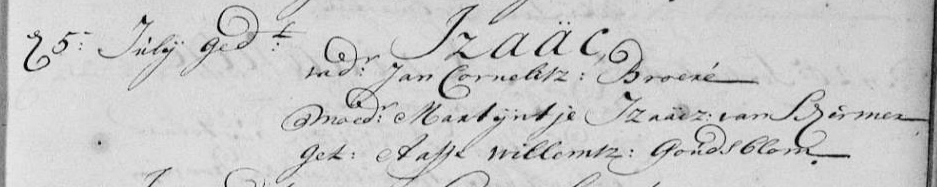 25: Julÿ ged:t Izaäc,
vadr: Jan Cornelisz: Broeré
moedr: Martÿntje Izaäcz: van
get: Aafje Willemsz: Goudsblom.